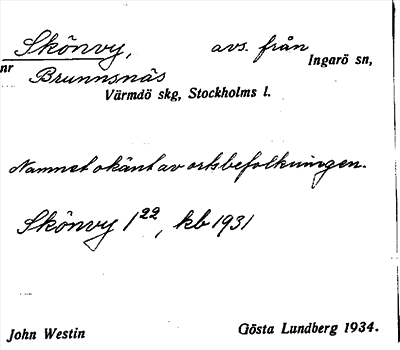 Skönvy, avs. från Ingarö sn,
nr Brunnsnäs
Värmdö skg, Stockholms l.
Namnet okänt av ortsbefolkningen.
Skönvy 1²², kb 1931
John Westin Gösta Lundberg 1934.